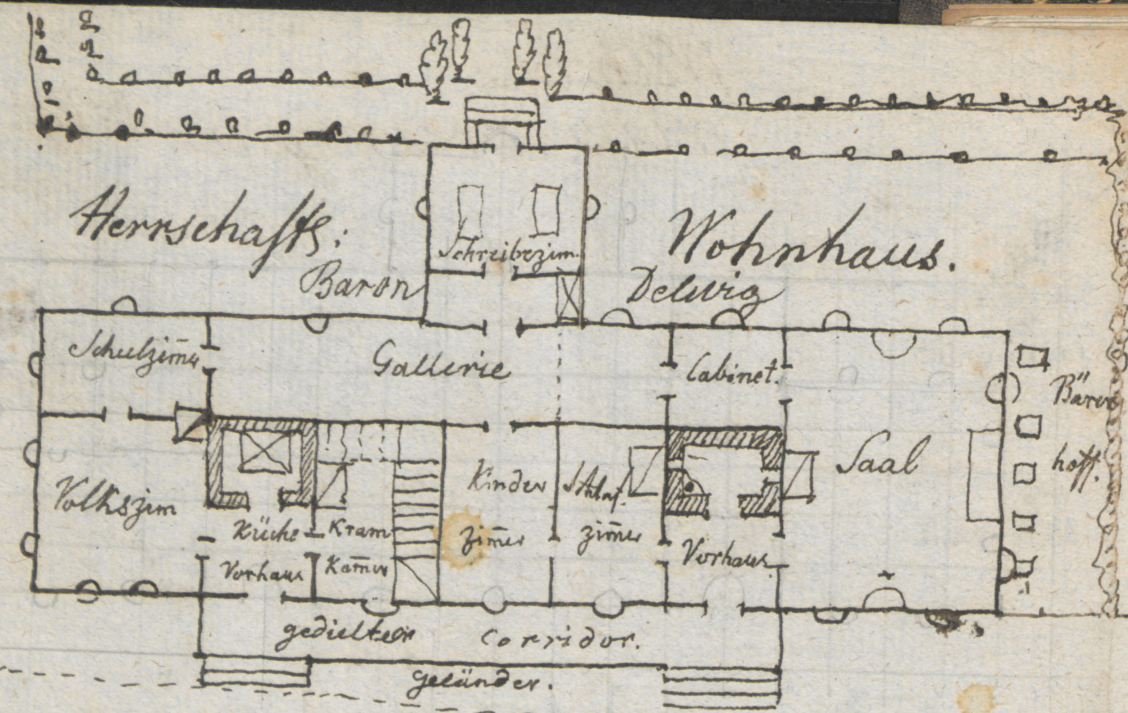 Herrschafts:
Wohnhaus.
Schreibezim.
Baron
Delwig
Schulzim̄er
Gallerie
Cabinet.
Bären
hoff.
Saal
Volkszim
Küche
Kram
Kinder
Schlaf
Vorhaus
Kam̄er
zim̄er
zim̄er
Vorhaus
gedielter Corridor.
geländer.